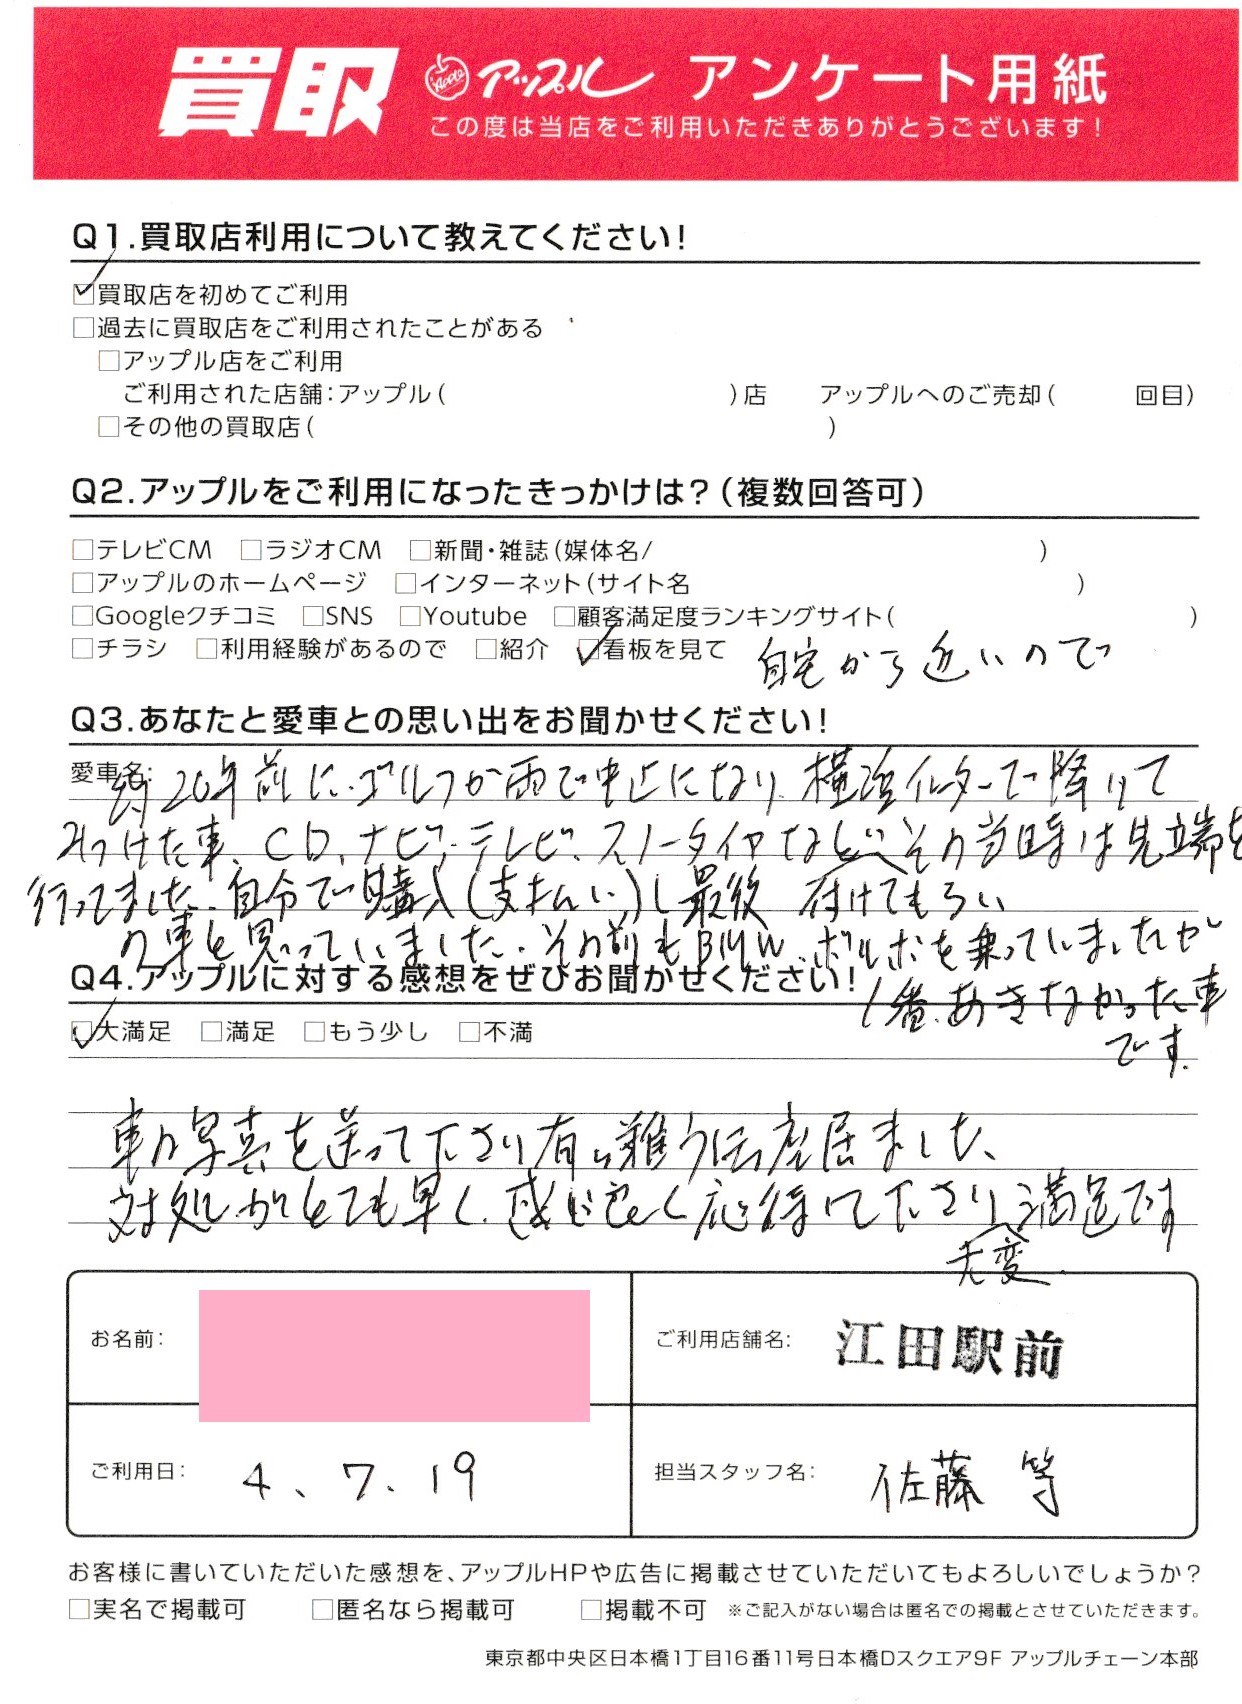 買取 Apple アップル アンケート用紙
この度は当店をご利用いただきありがとうございます!
Q1.買取店利用について教えてください!
☑買取店を初めてご利用
□過去に買取店をご利用されたことがある
□アップル店をご利用
ご利用された店舗:アップル( )店 アップルへのご売却( 回目)
□その他の買取店( )
Q2.アップルをご利用になったきっかけは?(複数回答可)
□テレビCM □ラジオCM □新聞・雑誌(媒体名/ )
□アップルのホームページ □インターネット(サイト名 )
□Googleクチコミ □SNS □Youtube □顧客満足度ランキングサイト( )
□チラシ □利用経験があるので □紹介 ☑看板を見て 自宅から近いので
Q3.あなたと愛車との思い出をお聞かせください!
愛車名:
約20年前に、ゴルフが雨で中止になり、横浜インターで降りて
みつけた車、CD、ナビ、テレビ、スノータイヤなど、その当時は先端を
行ってました。自分で購入(支払い)し最後 付けてもらい
の車と思っていました。その前もBMW、ボルボを乗っていましたが
1番、あきなかった車
です。
Q4.アップルに対する感想をぜひお聞かせください!
☑大満足 □満足 □もう少し □不満
車の写真を送って下さり有り難う御座居ました、
対処がとても早く、感じ良く応待して下さり満足です
大変
お名前: ご利用店舗名: 江田駅前
ご利用日: 4、7、19 担当スタッフ名: 佐藤 等
お客様に書いていただいた感想を、アップルHPや広告に掲載させていただいてもよろしいでしょうか?
□実名で掲載可 □匿名なら掲載可 □掲載不可 ※ご記入がない場合は匿名での掲載とさせていただきます。
東京都中央区日本橋1丁目16番11号日本橋Dスクエア9F アップルチェーン本部